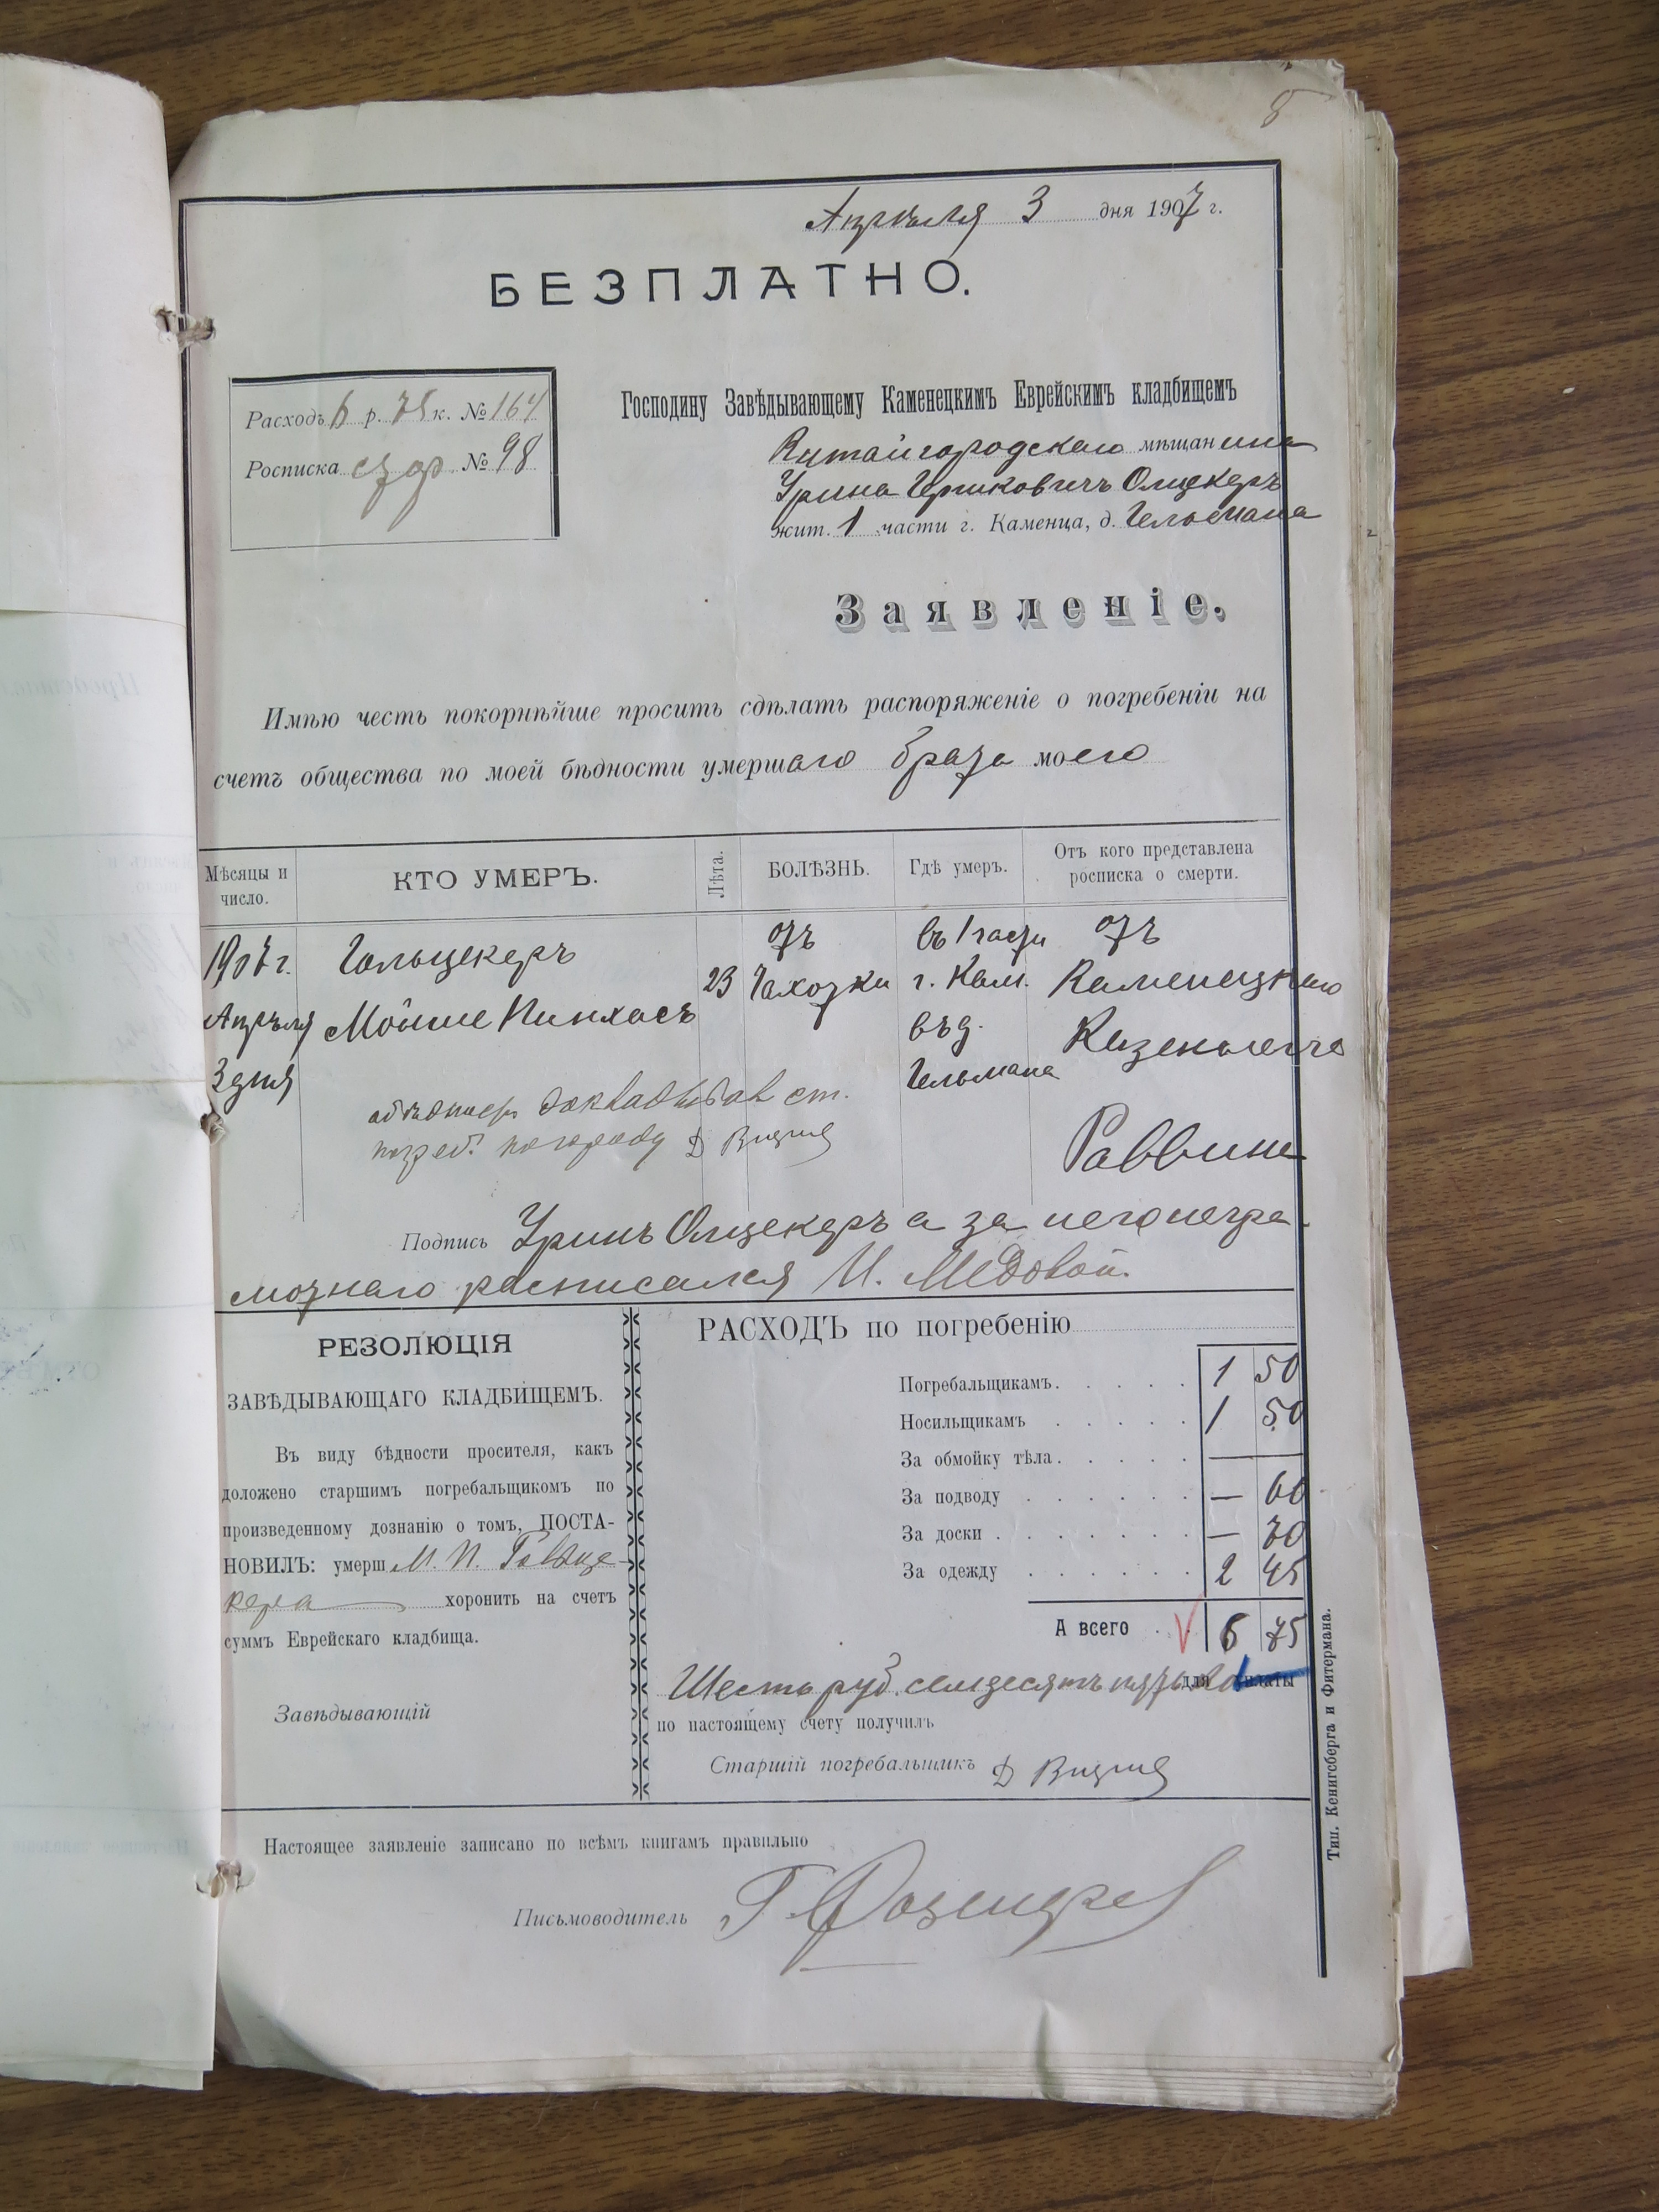 8
Апрѣля 3 дня 1907 г.
БЕЗПЛАТНО.
Расходъ 6 р. 75 к. № 164
Росписка № 98
Господину Завѣдывающему Каменецкимъ Еврейскимъ кладбищемъ
Китайгородскаго мѣщанина
жит. 1 части г. Каменца, д. Гельмана
Заявленіе.
Имѣю честь покорнѣйше просить сдѣлать распоряженіе о погребеніи на
счетъ общества по моей бѣдности умершаго брата моего
Мѣсяцы и число.
КТО УМЕРЪ.
Лѣта.
БОЛѢЗНЬ.
Гдѣ умеръ.
Отъ кого представлена росписка о смерти.
1907 г. Апрѣля 3 дня
Гольцекеръ Мойше Пинхасъ
23
отъ Чахотки
въ 1 части г. Кам. въ д. Гельмана
отъ Каменецкаго Казеннаго Раввина
Подпись Уринъ Олцекеръ а за него негра-
мотнаго расписался И. Медовой.
РЕЗОЛЮЦІЯ
ЗАВѢДЫВАЮЩАГО КЛАДБИЩЕМЪ.
Въ виду бѣдности просителя, какъ
доложено старшимъ погребальщикомъ по
произведенному дознанію о томъ, ПОСТА-
НОВИЛЪ: умерш М. П. Гольце-
кера хоронить на счетъ
суммъ Еврейскаго кладбища.
Завѣдывающій
РАСХОДЪ по погребенію
Погребальщикамъ. 1 50
Носильщикамъ 1 50
За обмойку тѣла. —
За подводу — 60
За доски — 70
За одежду 2 45
А всего 6 75
Шесть руб. семдесятъ пять к для уплаты
по настоящему счету получилъ
Старшій погребальщикъ
Настоящее заявленіе записано по всѣмъ книгамъ правильно
Письмоводитель
Тип. Кенигсберга и Фитермана.